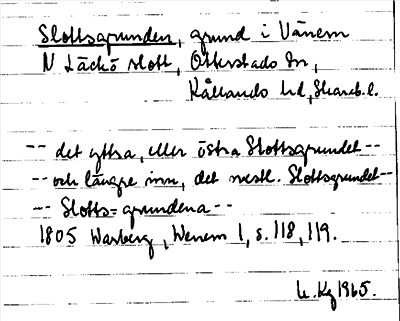 Slottsgrunden, grund i Vänern
N Läckö slott, Otterstads sn,
Kållands hd, Skarab. l.
-- det yttra, eller östra Slottsgrundet --
-- och längre inn, det westl. Slottsgrundet --
-- Slotts=grundena --
1805 Warberg, Wenern 1, s. 118, 119.
Kg 1965.